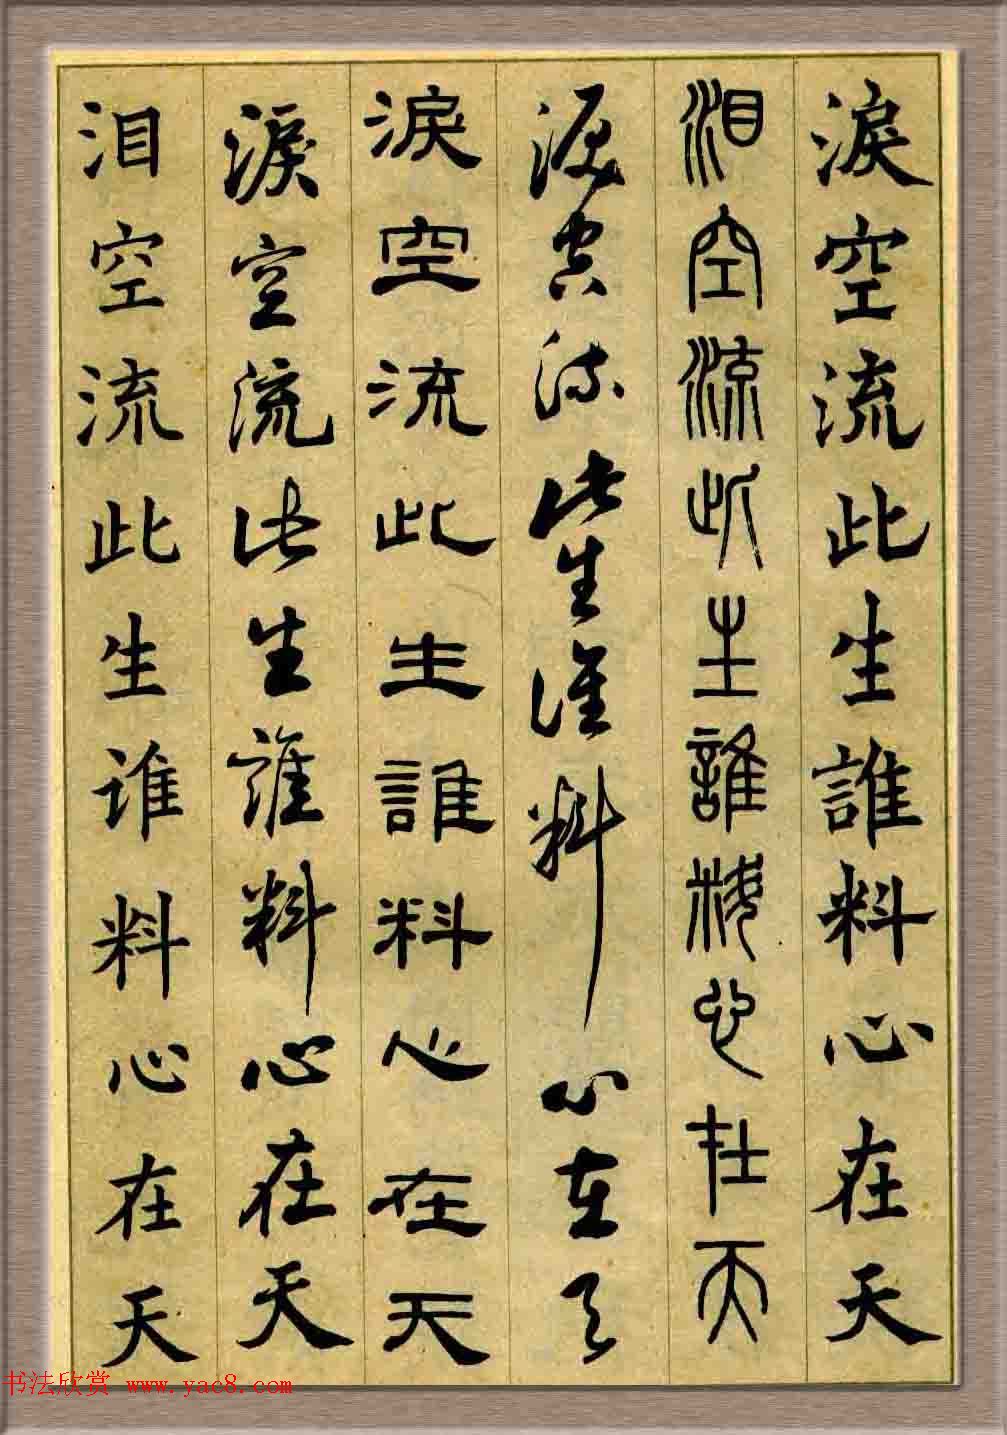 淚空流此生誰料心在天
泪空流此生誰料心在天
淚空流此生谁料心在天
淚空流此生誰料心在天
淚空流此生誰料心在天
泪空流此生谁料心在天
书法欣赏 www.yac8.com